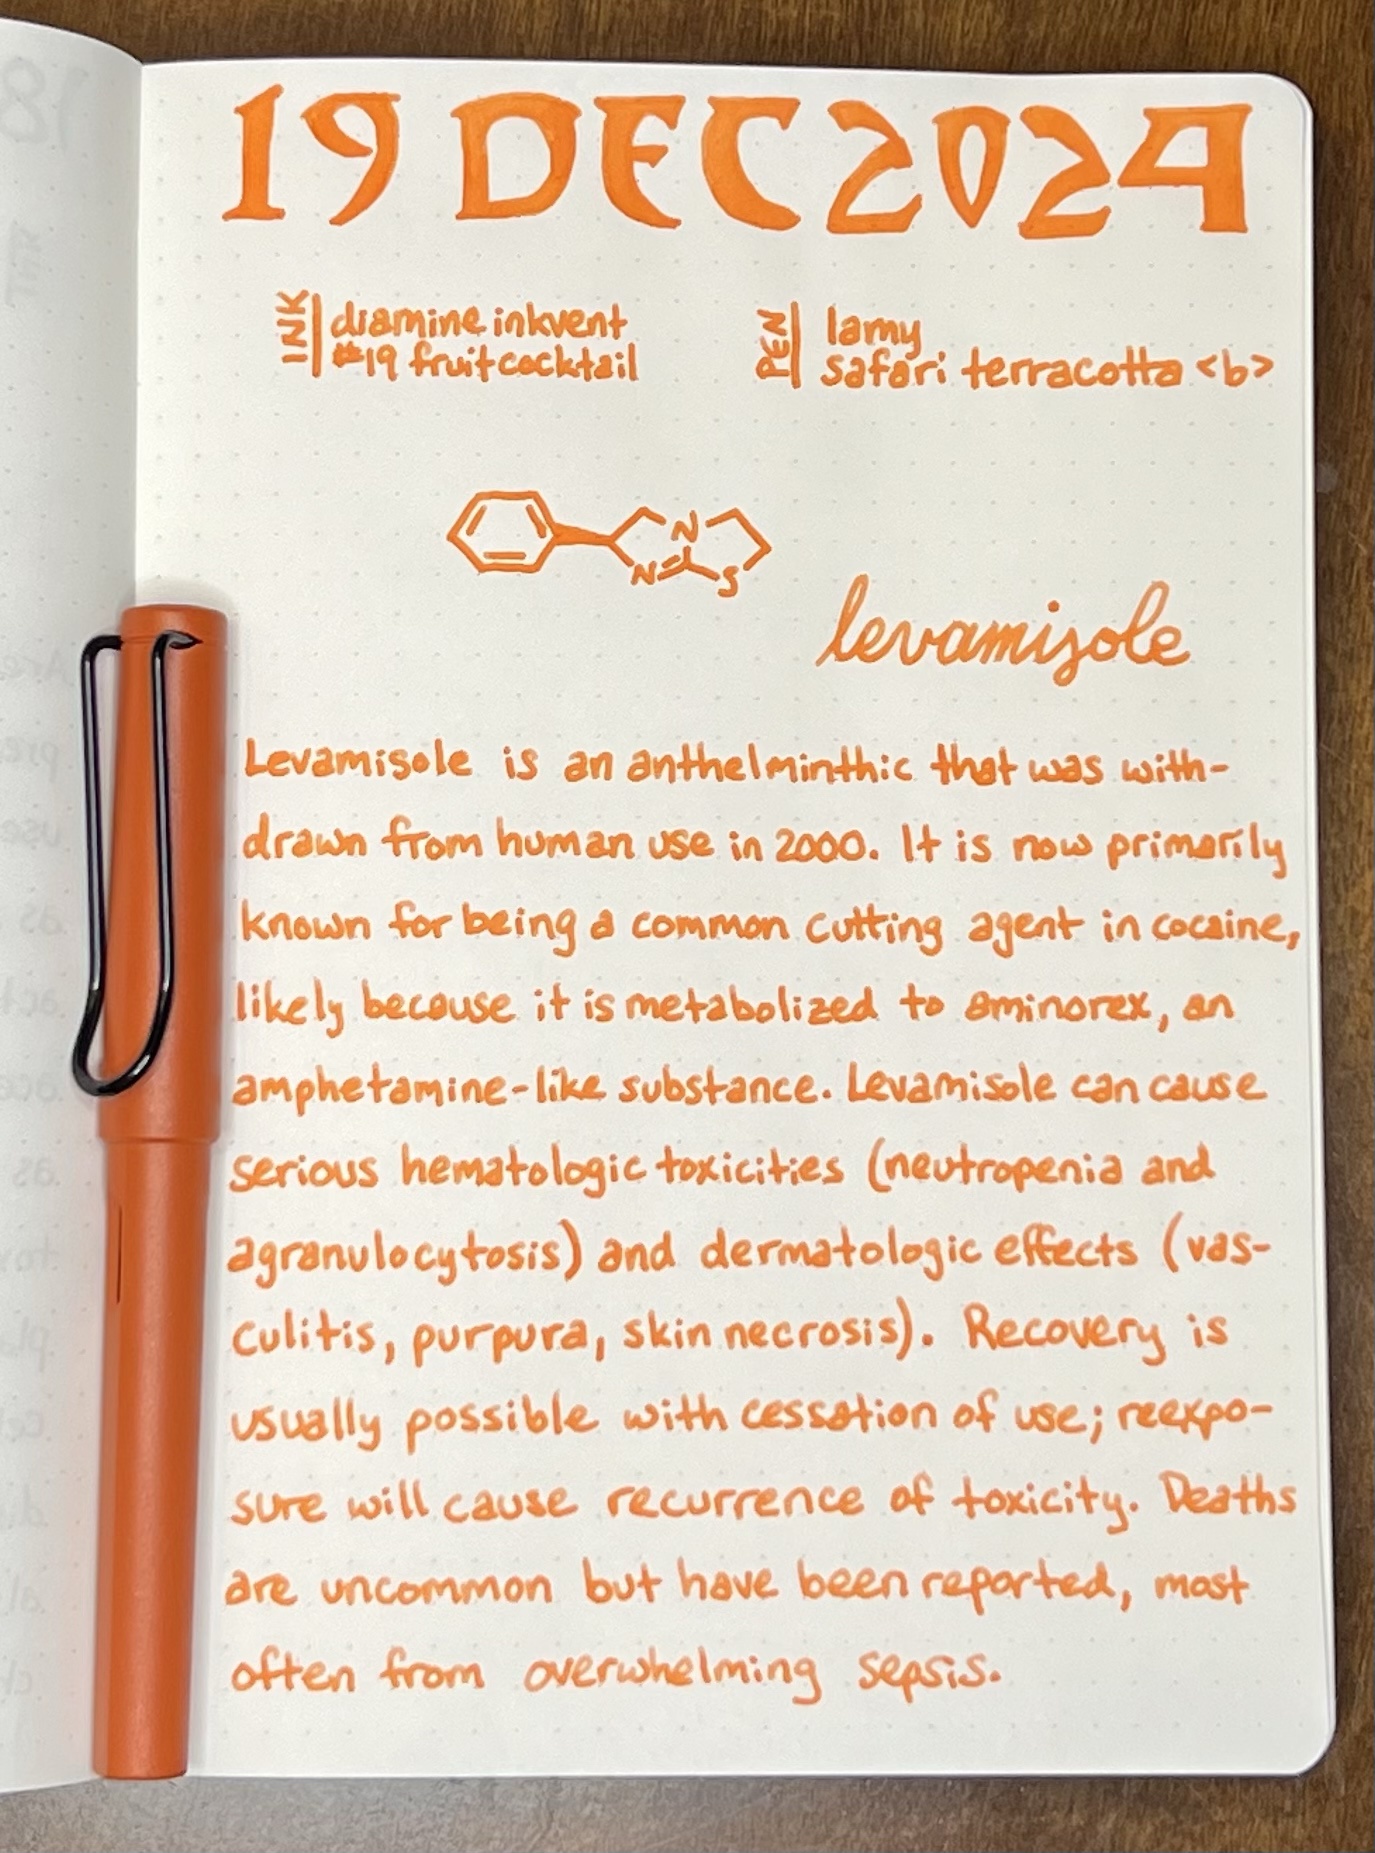 19 DEC 2024
INK
diamine inkvent
#19 fruit cocktail
PEN
lamy
safari terracotta <b>
N
N
S
levamisole
Levamisole is an anthelminthic that was with-
drawn from human use in 2000. It is now primarily
known for being a common cutting agent in cocaine,
likely because it is metabolized to aminorex, an
amphetamine-like substance. Levamisole can cause
serious hematologic toxicities (neutropenia and
agranulocytosis) and dermatologic effects (vas-
culitis, purpura, skin necrosis). Recovery is
usually possible with cessation of use; reexpo-
sure will cause recurrence of toxicity. Deaths
are uncommon but have been reported, most
often from overwhelming sepsis.